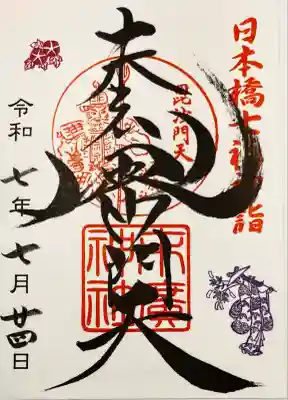 日本橋七福神詣
毘沙門天
毘沙門天
令和七年七月廿四日